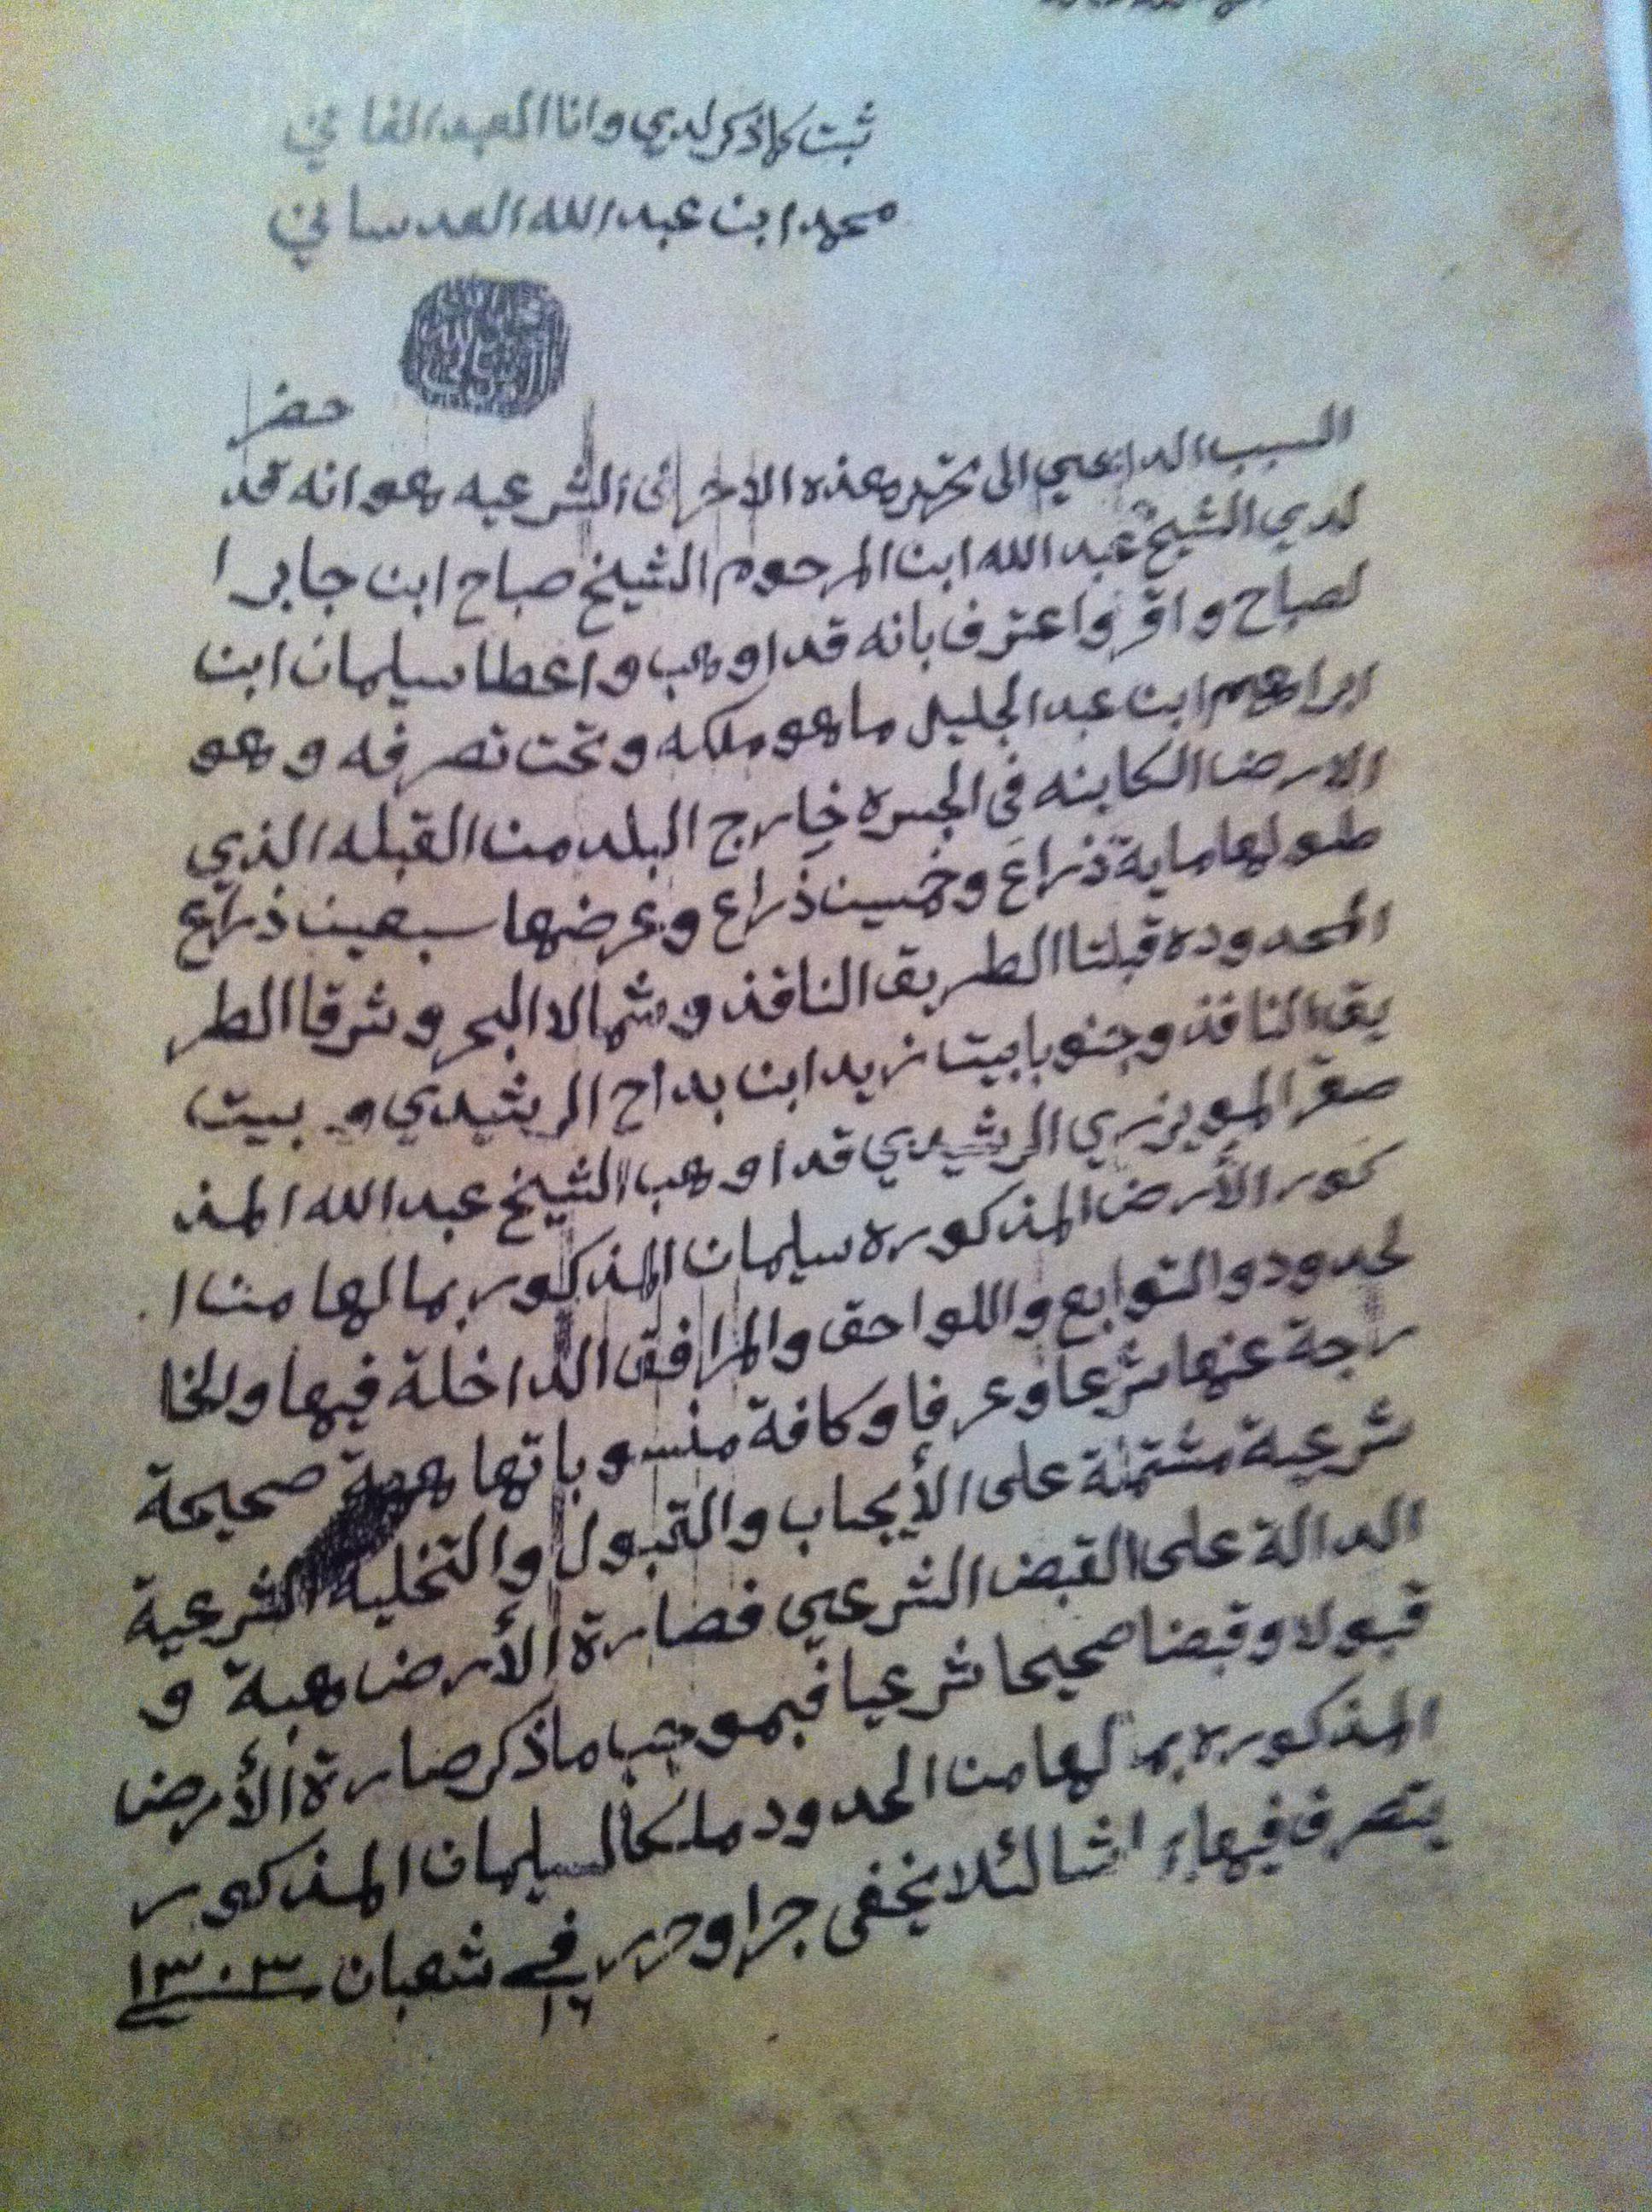 ثبت كما ذكر لدي وانا العبد الفاني
محمد ابن عبد الله العدساني
حضر
السبب الداعي الى تحرير هذه الاحرف الشرعيه هو انه قد
لدي الشيخ عبد الله ابن المرحوم الشيخ صباح ابن جابر ا
لصباح واقر واعترف بانه قد اوهب واعطا سليمان ابن
ابراهيم ابن عبد الجليل ما هو ملكه وتحت تصرفه وهو
الارض الكاينه في الجسره خارج البلد من القبله الذي
طولها ماية ذراع وخمسين ذراع وعرضها سبعين ذراع
المحدوده قبلتا الطريق النافذ وشمالا البحر وشرقا الطر
يق النافذ وجنوبا بيت زيد ابن بداح الرشيدي و بيت
صقر المويزري الرشيدي قد اوهب الشيخ عبد الله المذ
كور الأرض المذكوره سليمان المذكور بما لها من ا
لحدود والتوابع واللواحق والمرافق الداخلة فيها والخا
رجة عنها شرعا وعرفا وكافة منسوباتها هبة صحيحة
شرعية مشتملة على الأيجاب والقبول والتخلية الشرعية
الدالة على القبض الشرعي فصارة الأرض هبة و
قبولا وقبضا صحيحا شرعيا فبموجب ما ذكر صارة الأرض
المذكوره بما لها من الحدود ملكا لسليمان المذكور
يتصرف فيها اشا لئلا يخفى جرا وحرر في ١٦ شعبان سنة ١٣٠٣